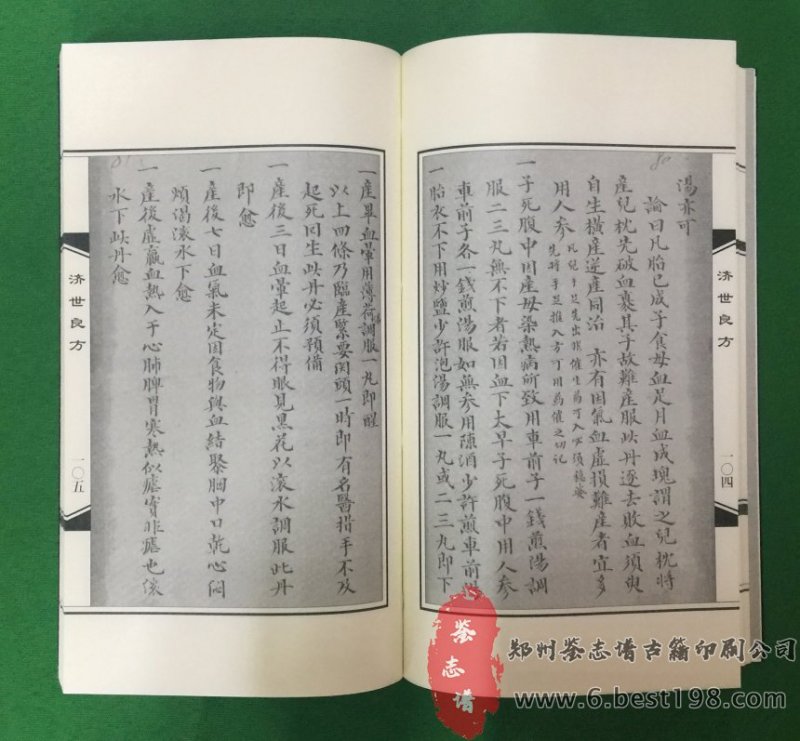 湯亦可
論曰凡胎已成子食母血足月血成塊謂之兒枕將
產兒枕先破血裹其子故難產服此丹逐去敗血須臾
自生橫產逆產同治 亦有因氣血虛損難產者宜多
用人參
此兒手足先出非催生藥可入必須穩婆
先將手足推入方可用藥催之切記
一子死腹中因產母染熱病所致用車前子一錢煎湯調
服二三丸無不下者若因血下太早子死腹中用人參
車前子各一錢煎湯服如無參用陳酒少許煎車前
一胎衣不下用炒鹽少許泡湯調服一丸或二三丸即下
济世良方
一〇四
一產畢血暈用薄荷湯調服一丸即醒
以上四條乃臨產緊要関頭一時即有名醫措手不及
起死回生此丹必須預備
一產後三日血暈起止不得眼見黑花以滾水調服此丹
即愈
一產後七日血氣未定因食物與血結聚胸中口乾心悶
煩渴滚水下愈
一產後虛羸血熱入于心肺脾胃寒熱似瘧實非瘧也滚
水下此丹愈
济世良方
一〇五
鉴志谱
郑州鉴志谱古籍印刷公司
www.6.best198.com